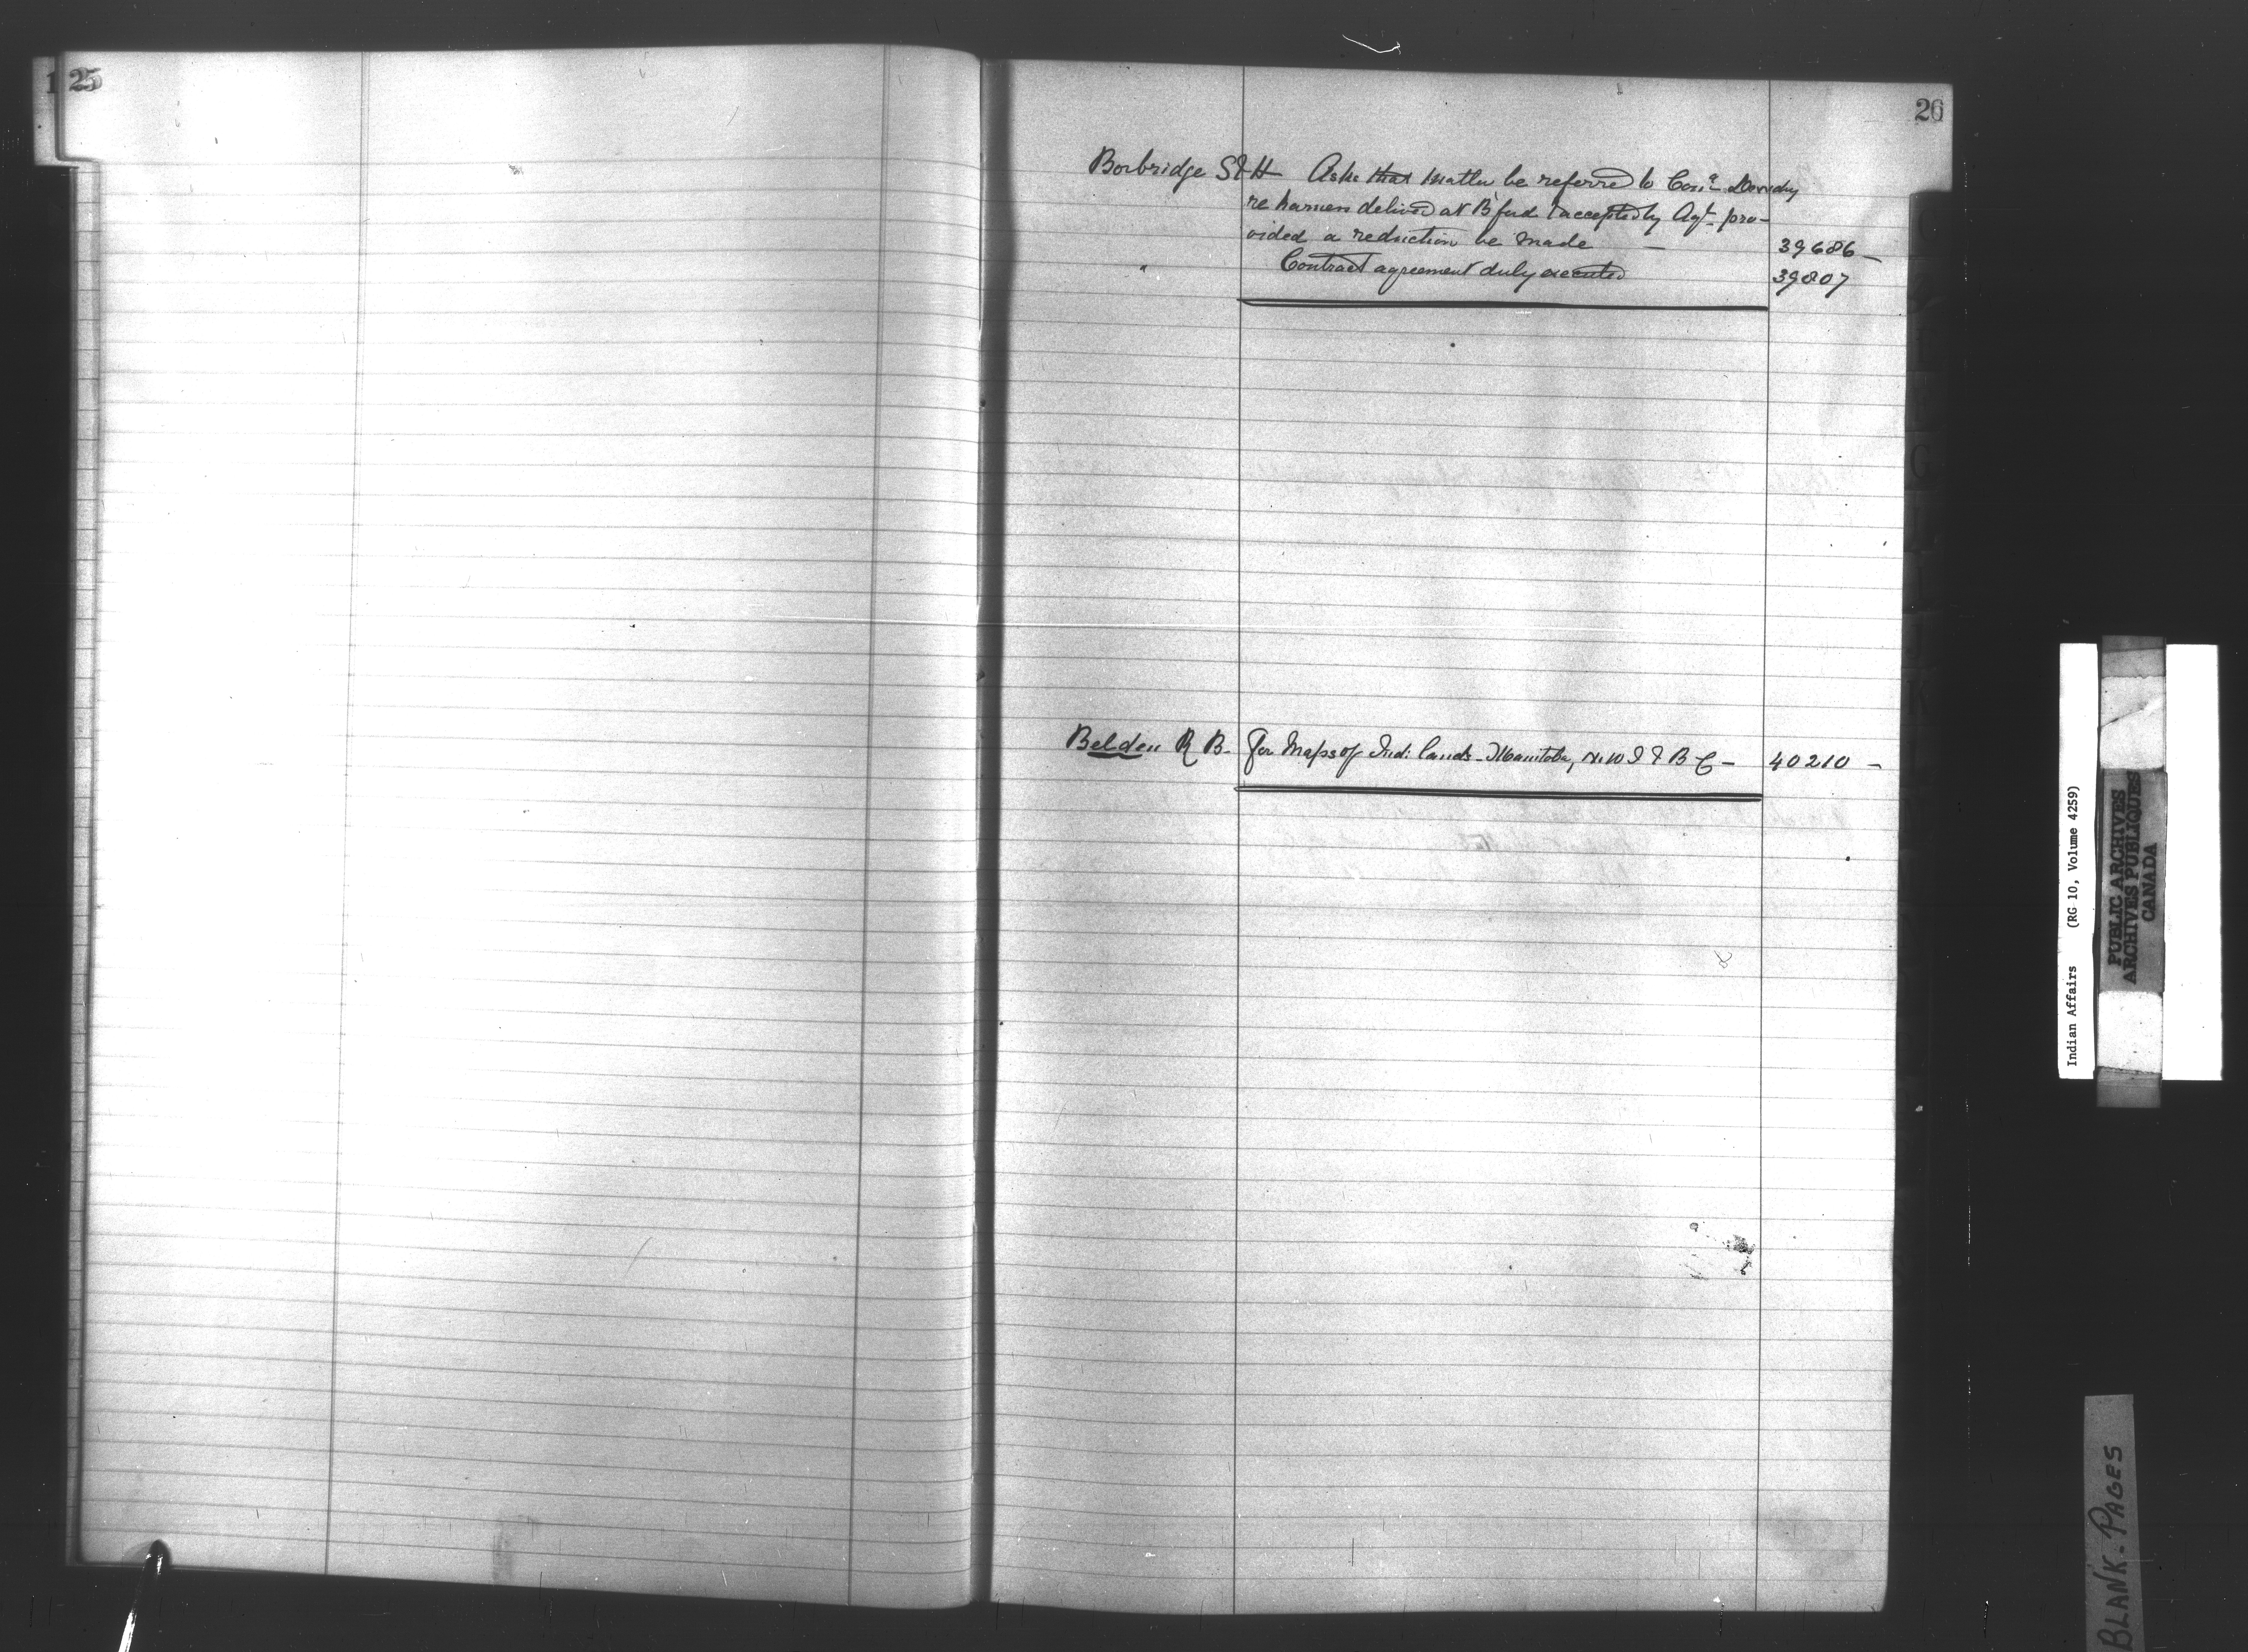 25
26
Borbridge S & H Asks that matter be referred to Comr Dewdney
re harness delived at B'ford & accepted by Agt. pro-
vided a reduction be made — 39686 —
" Contract agreement duly executed 39807
Belden R B. For Maps of Ind: lands - Manitoba, N.W.T & B C — 40210 —
Indian Affairs (RG 10, Volume 4259)
PUBLIC ARCHIVES
ARCHIVES PUBLIQUES
CANADA
BLANK-PAGES